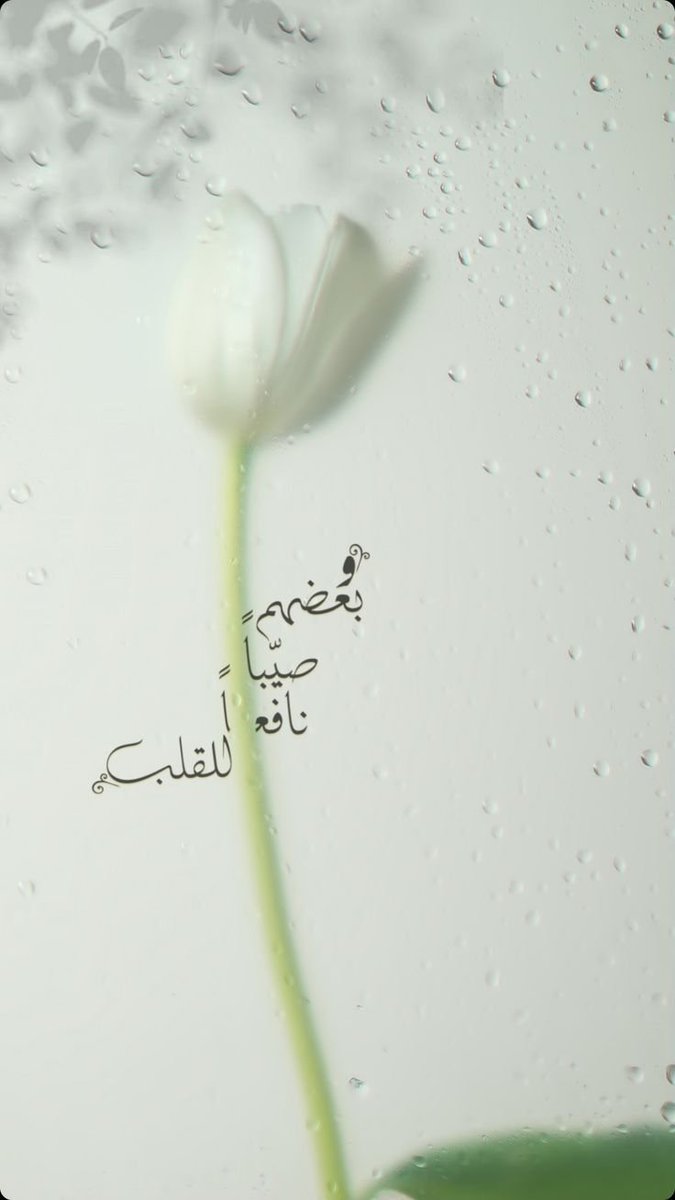 وبعضهم
صيّباً
نافعاً
للقلب